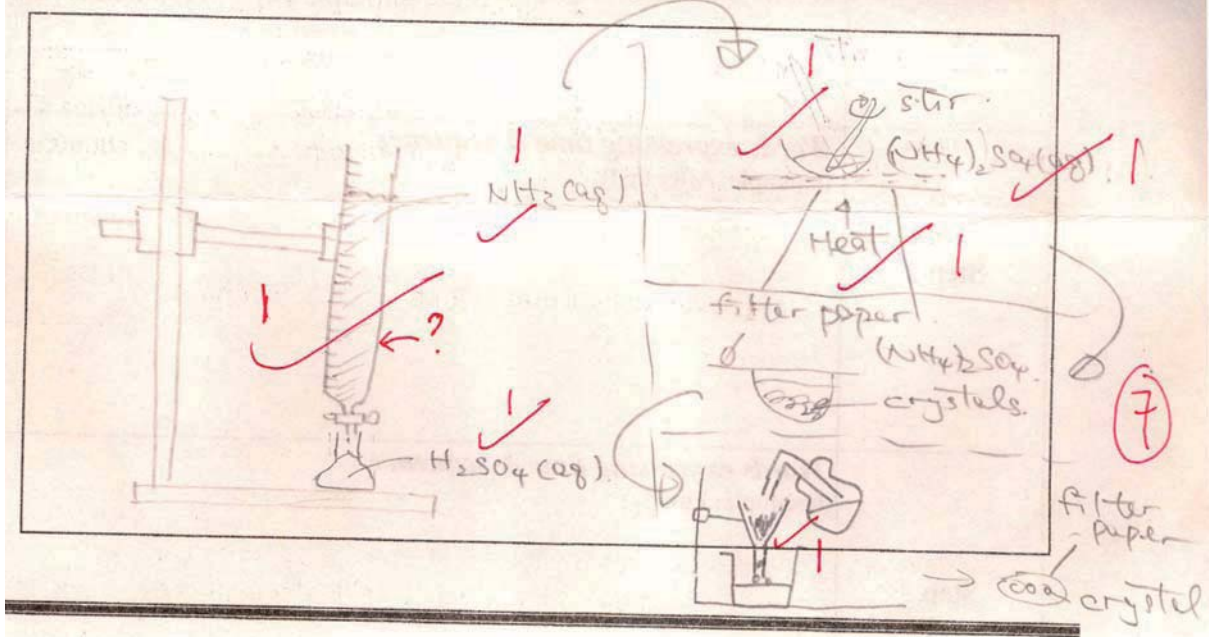 NH3(aq)
H2SO4(aq)
1
1
1
?
1
stir
(NH4)2SO4(aq)
1
Heat
1
filter paper
(NH4)2SO4
crystals
1
7
filter
paper
crystal